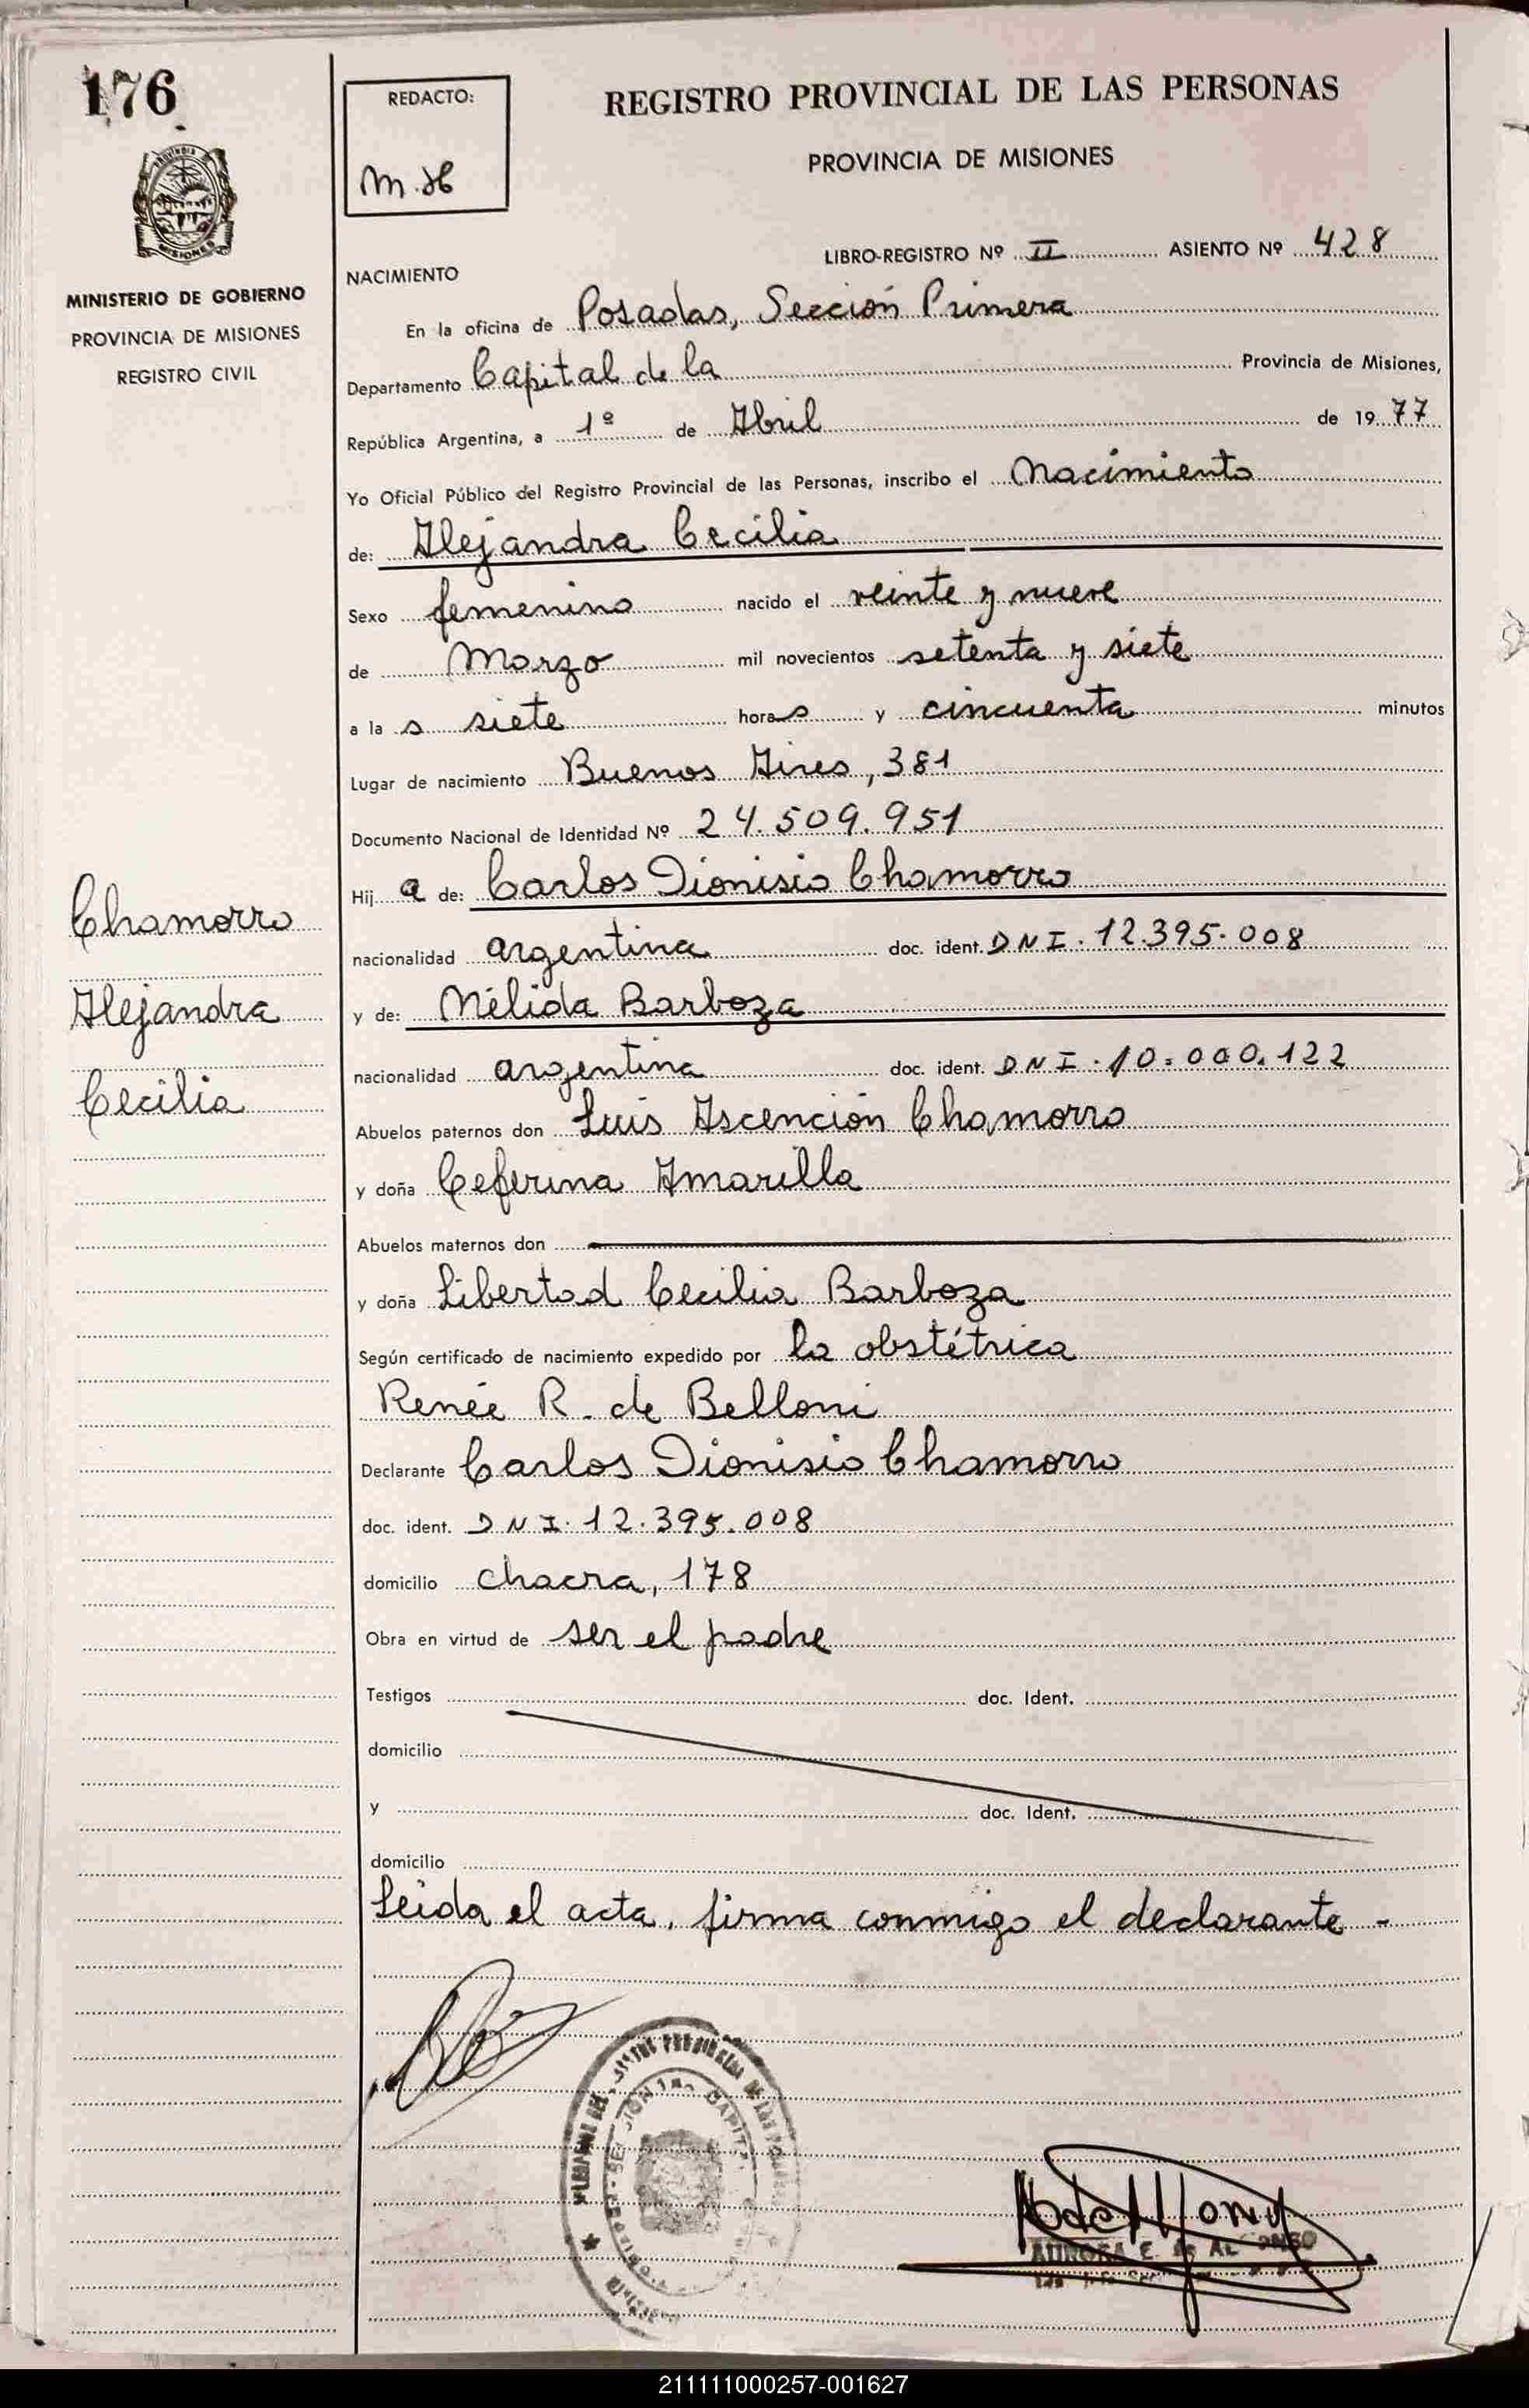 176
REDACTO:
M.H
REGISTRO PROVINCIAL DE LAS PERSONAS
PROVINCIA DE MISIONES
PROVINCIA
MISIONES
MINISTERIO DE GOBIERNO
PROVINCIA DE MISIONES
REGISTRO CIVIL
LIBRO-REGISTRO Nº II ASIENTO Nº 428
NACIMIENTO
En la oficina de Posadas, Sección Primera
Departamento Capital de la Provincia de Misiones,
República Argentina, a 1º de Abril de 1977
Yo Oficial Público del Registro Provincial de las Personas, inscribo el Nacimiento
de: Alejandra Cecilia
Sexo femenino nacido el veinte y nueve
de Marzo mil novecientos setenta y siete
a la s siete horas y cincuenta minutos
Lugar de nacimiento Buenos Aires, 381
Documento Nacional de Identidad Nº 24.509.951
Hij a de: Carlos Dionisio Chamorro
nacionalidad argentina doc. ident. DNI. 12.395.008
y de: Nélida Barboza
nacionalidad argentina doc. ident. DNI. 10.000.122
Abuelos paternos don Luis Ascención Chamorro
y doña Ceferina Amarilla
Abuelos maternos don
y doña Libertad Cecilia Barboza
Según certificado de nacimiento expedido por la obstétrica
Renée R. de Belloni
Declarante Carlos Dionisio Chamorro
doc. ident. DNI. 12.395.008
domicilio chacra, 178
Obra en virtud de ser el padre
Testigos doc. Ident.
domicilio
y doc. Ident.
domicilio
Leida el acta, firma conmigo el declarante -
Chamorro
Alejandra
Cecilia
AURORA E. de
211111000257-001627